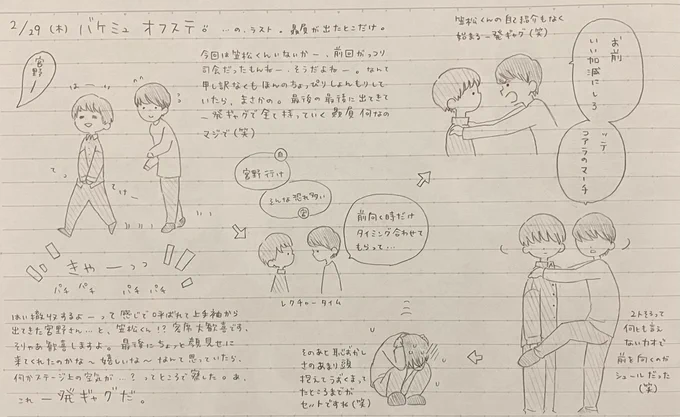 2/29(木) バケミュ オフステ。 …の、ラスト。贔屓が出たとこだけ。
宮野ー
今回は笠松くんいないかー、前回がっつり
司会だったもんねー、そうだよねー。なんて
申し訳なくもほんのちょっぴりしょんもりして
いたら、まさかの。最後の最後に出てきて
一発ギャグで全て持っていく贔屓何なの
マジで(笑)
は…
てってけー
きゃーっっ
パチ パチ パチ パチ
はい撤収するよーって感じで呼ばれて上手袖から
出てきた宮野さん…と、笠松くん!? 客席大歓喜です。
そりゃあ歓喜しますよ。最後にちょっと顔見せに
来てくれたのかな〜嬉しいな〜なんて思っていたら、
何かステージ上の空気が…?ってところで察した。あ、
これ一発ギャグだ。
笠松くんの自己紹介もなく
始まる一発ギャグ(笑)
お前
いい加減にしろ
ッテ
コアラのマーチ
宮野行け
そんな恐れ多い
前向く時だけ
タイミング合わせて
もらって…
レクチャータイム
2人そろって
何とも言え
ないカオで
前を向くのが
シュールだった
(笑)
そのあと恥ずかし
さのあまり頭
抱えてうずくまっ
たところまでが
セットですね(笑)